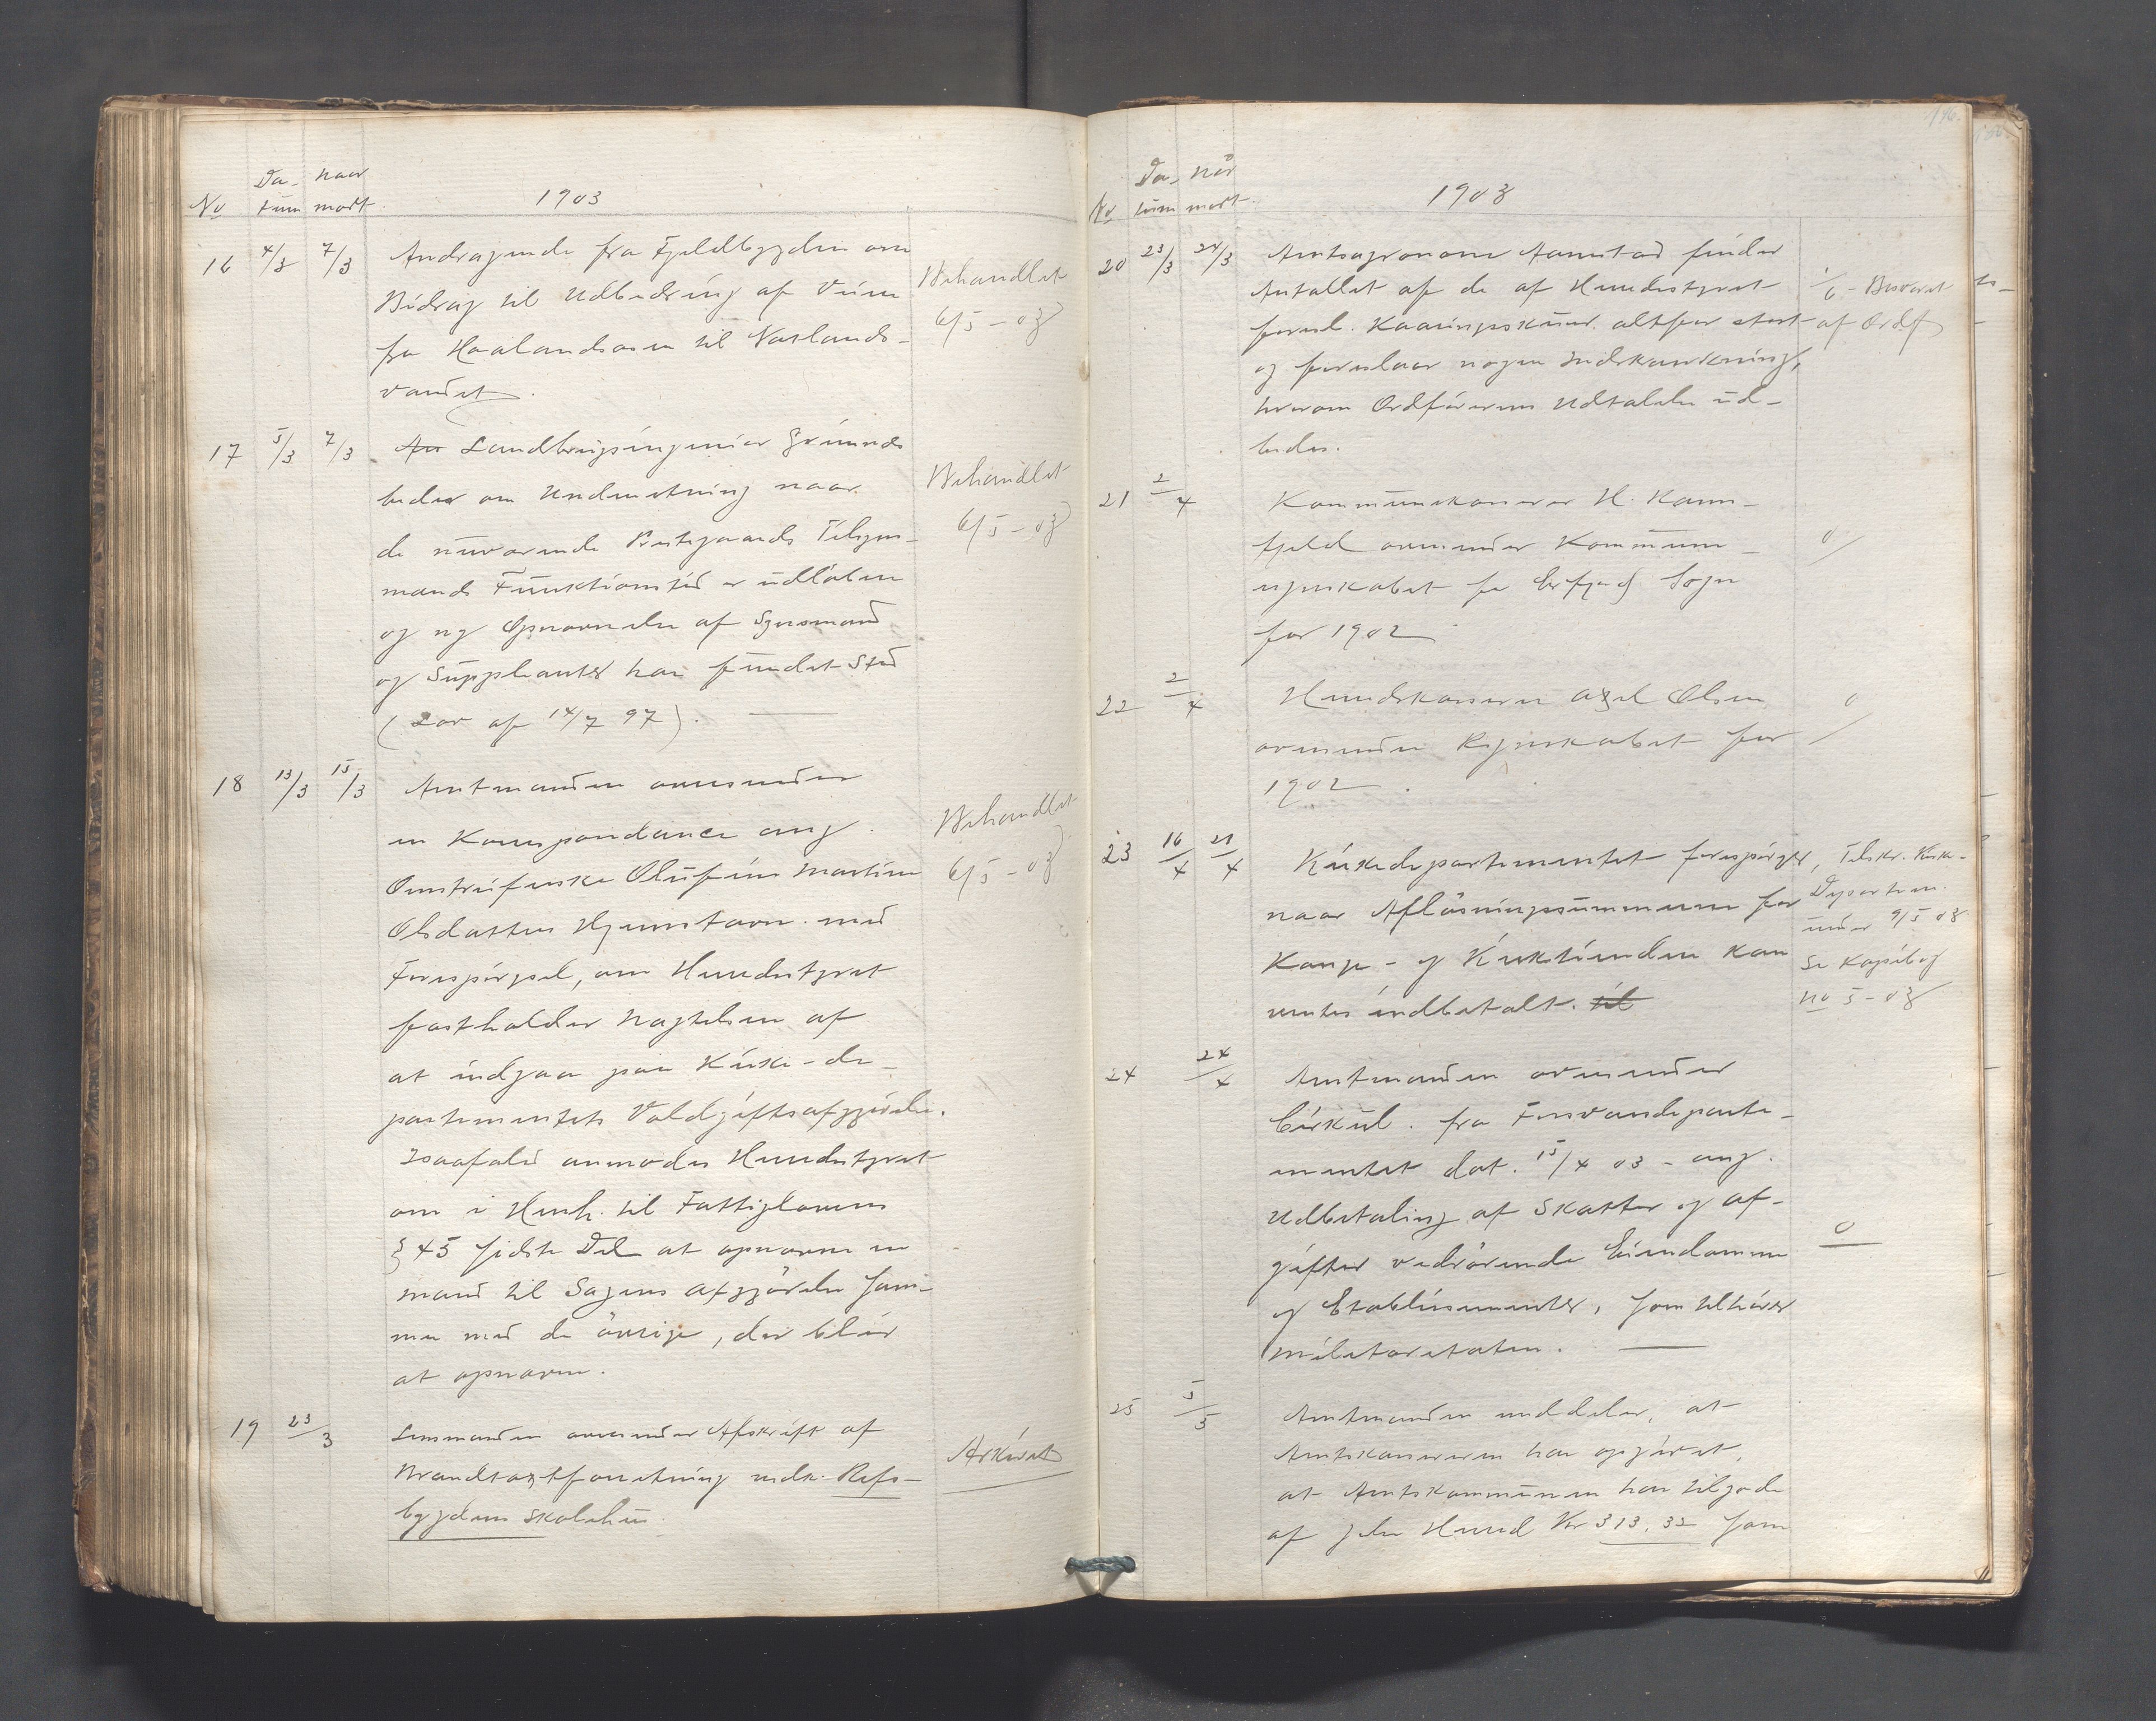 No Da- tum naar modt. 1903
16 4/3 7/3 Andragende fra Fjeldbygden om
Bidrag til Udbedring af Veien
fra Haalandsosen til Natlands-
vandet.
Behandlet
6/5 - 03
17 5/3 7/3 Landbrugsingeniør Grimnes
beder om Underretning naar
de nuværende Tilsyns-
mands Funktionstid er udløben
og ny Opnævnelse af Synsmand
og Suppleanter har fundet Sted
(Lov af 14/7 97).
Behandlet
6/5 - 03
18 13/3 15/3 Amtmanden oversender
en Korrespondance ang.
Omstreiferske Olufine Martine
Olsdatter med
Forespørgsel, om Herredstyret
fastholder Nægtelsen af
at indgaa paa Kirke-de-
partementets Voldgiftsafgjørelse.
Isaafald anmodes Herredstyret
om i Henh. til Fattiglovens
§ 45 sidste Del at opnævne en
mand til Sagens Afgjørelse sam-
men med de øvrige, der blir
at opnævne.
Behandlet
6/5 - 03
19 23/3 Lensmanden oversender Afskrift af
Brandtaxtforretning vedr. Refs-
bygdens Skolehus.
Arkivet
No Da- tum når modt. 1903
20 23/3 24/3 Amtsagronom Aamstad finder
Antallet af de af Herredstyret
foresl. Kaaringsskuer altfor stort
og foreslaar nogen Indskrænkning,
hvorom Ordførerens Udtalelse ud-
bedes.
1/6 - Besvaret
af Ordf
21 2/4 Kommunekasserer H. Ramn-
fjeld oversender Kommune-
regnskabet for Erfjord Sogn
for 1902
0
22 2/4 Herredskasserer Axel Olsen
oversender Regnskabet for
1902.
0
23 16/4 21/4 Kirkedepartementet forespørger,
naar Afløsningssummerne for
Konge- og Kirketienden kan
ventes indbetalt. til
Tilskr. Kirke-
Departem.
under 9/5 03
Se Kopibog
No 5 - 03
24 24/4 Amtmanden oversender
Cirkul. fra Forsvarsdeparte-
mentet dat. 15/4 03 - ang.
Udbetaling af Skatter og af-
gifter vedrørende Eiendomme
og Etablissementer, som tilhører
militæretaten.
0
25 5/5 Amtmanden meddeler, at
Amtskassereren har opgivet,
at Amtskommunen har tilgode
af Jelse Herred Kr 313,32 som